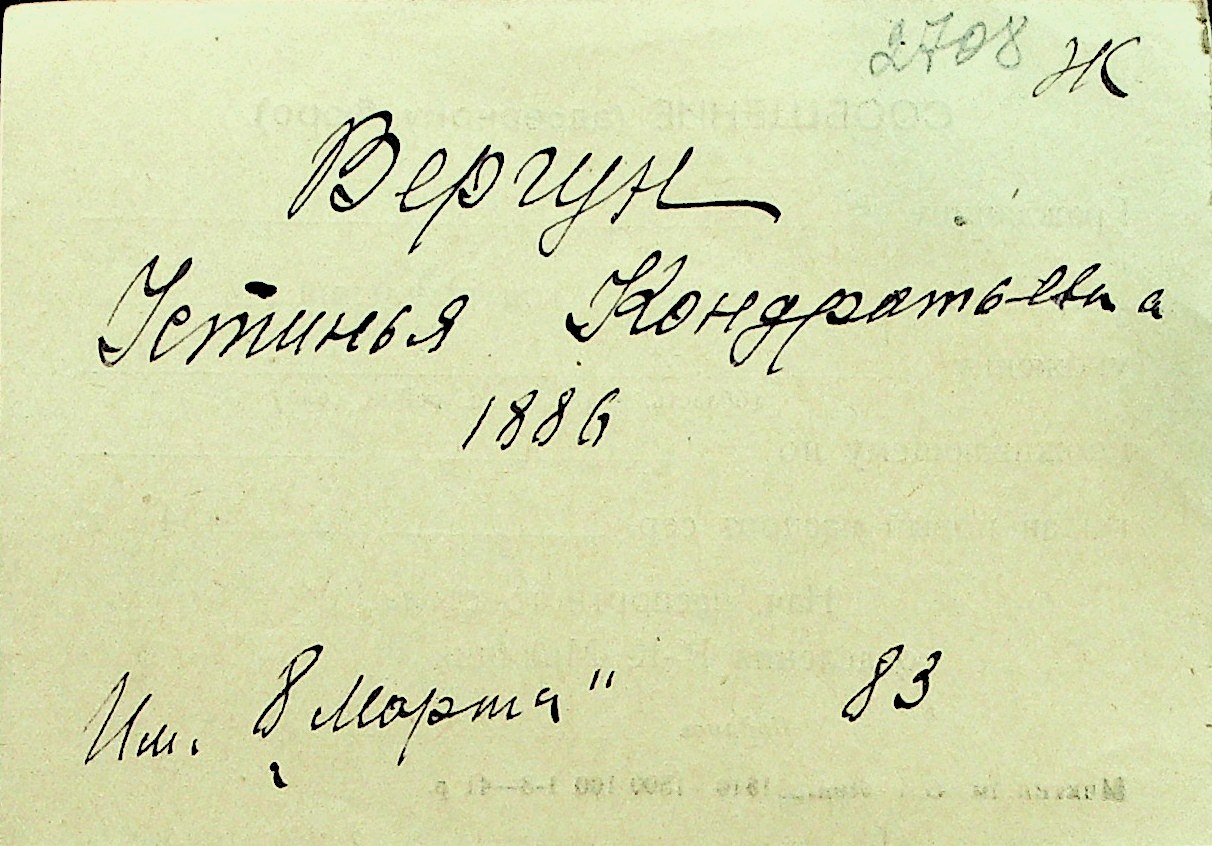 2708 Ж
Вергун
Устинья Кондратьевна
1886
Им. „8 Марта" 83